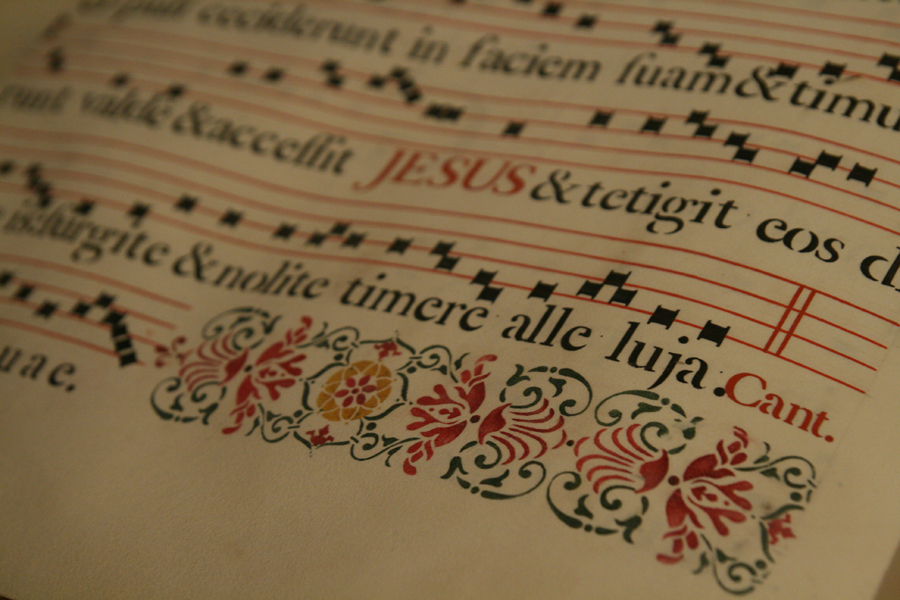 ceciderunt in faciem suam & timu
runt valdè & accessit JESUS & tetigit eos d
surgite & nolite timere alle luja. Cant.
uae.